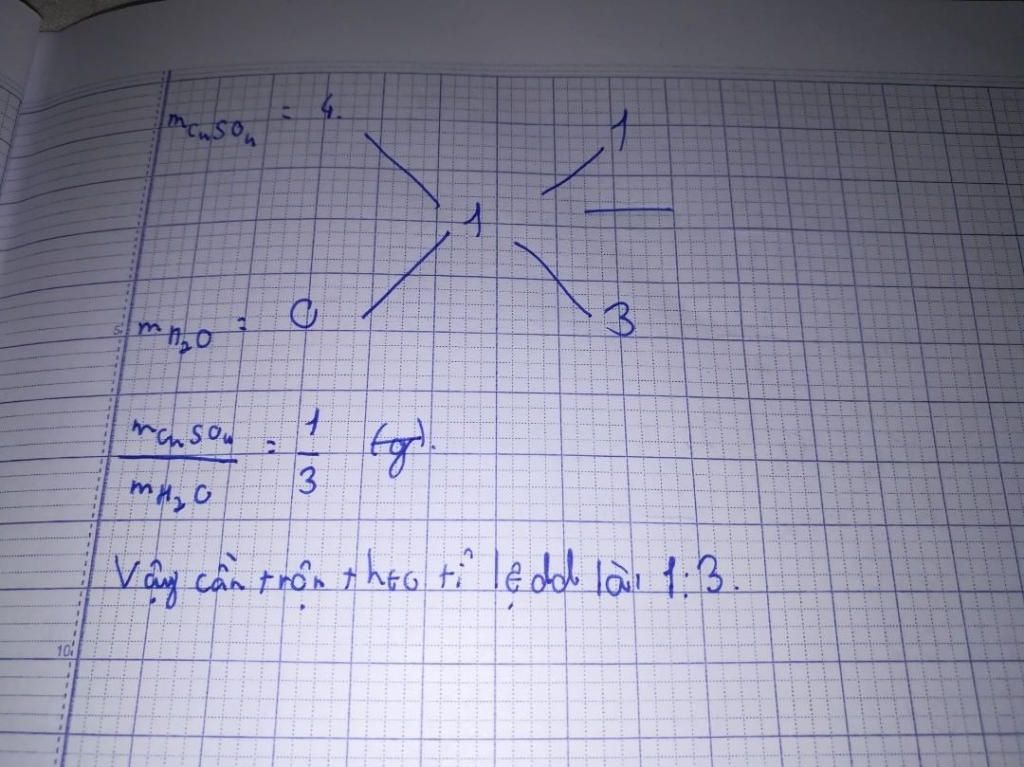 mCuSO4 = 4.
1
1
mH2O = 0
3
mCuSO4 / mH2O = 1/3 (g).
Vậy cần trộn theo tỉ lệ dd là 1:3.
5
10